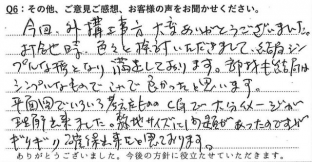 Q6：その他、ご意見ご感想、お客様の声をお聞かせください。
今回、外構工事方大変ありがとうございました。
お打合せ時、色々と検討いただきまして、結局シン
プルな形となり満足しております。部材も結局は
シンプルなもので、これで良かったと思います。
平面図でいろいろ考えたものもCGで大分イメージが
理解出来ました。敷地サイズに問題があったのですが
ギリギリ確保出来たと思っております。
ありがとうございました。今後の方針に役立たせていただきます。